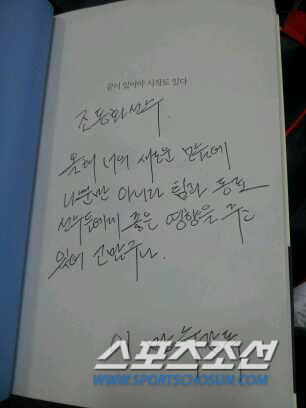 끝이 있어야 시작도 있다
조동화선수.
올해 너의 새로운 모습에
나뿐만 아니라 팀과 동료
선수들에게 좋은 영향을 주고
있어 고맙구나.
스포츠조선
WWW.SPORTSCHOSUN.COM